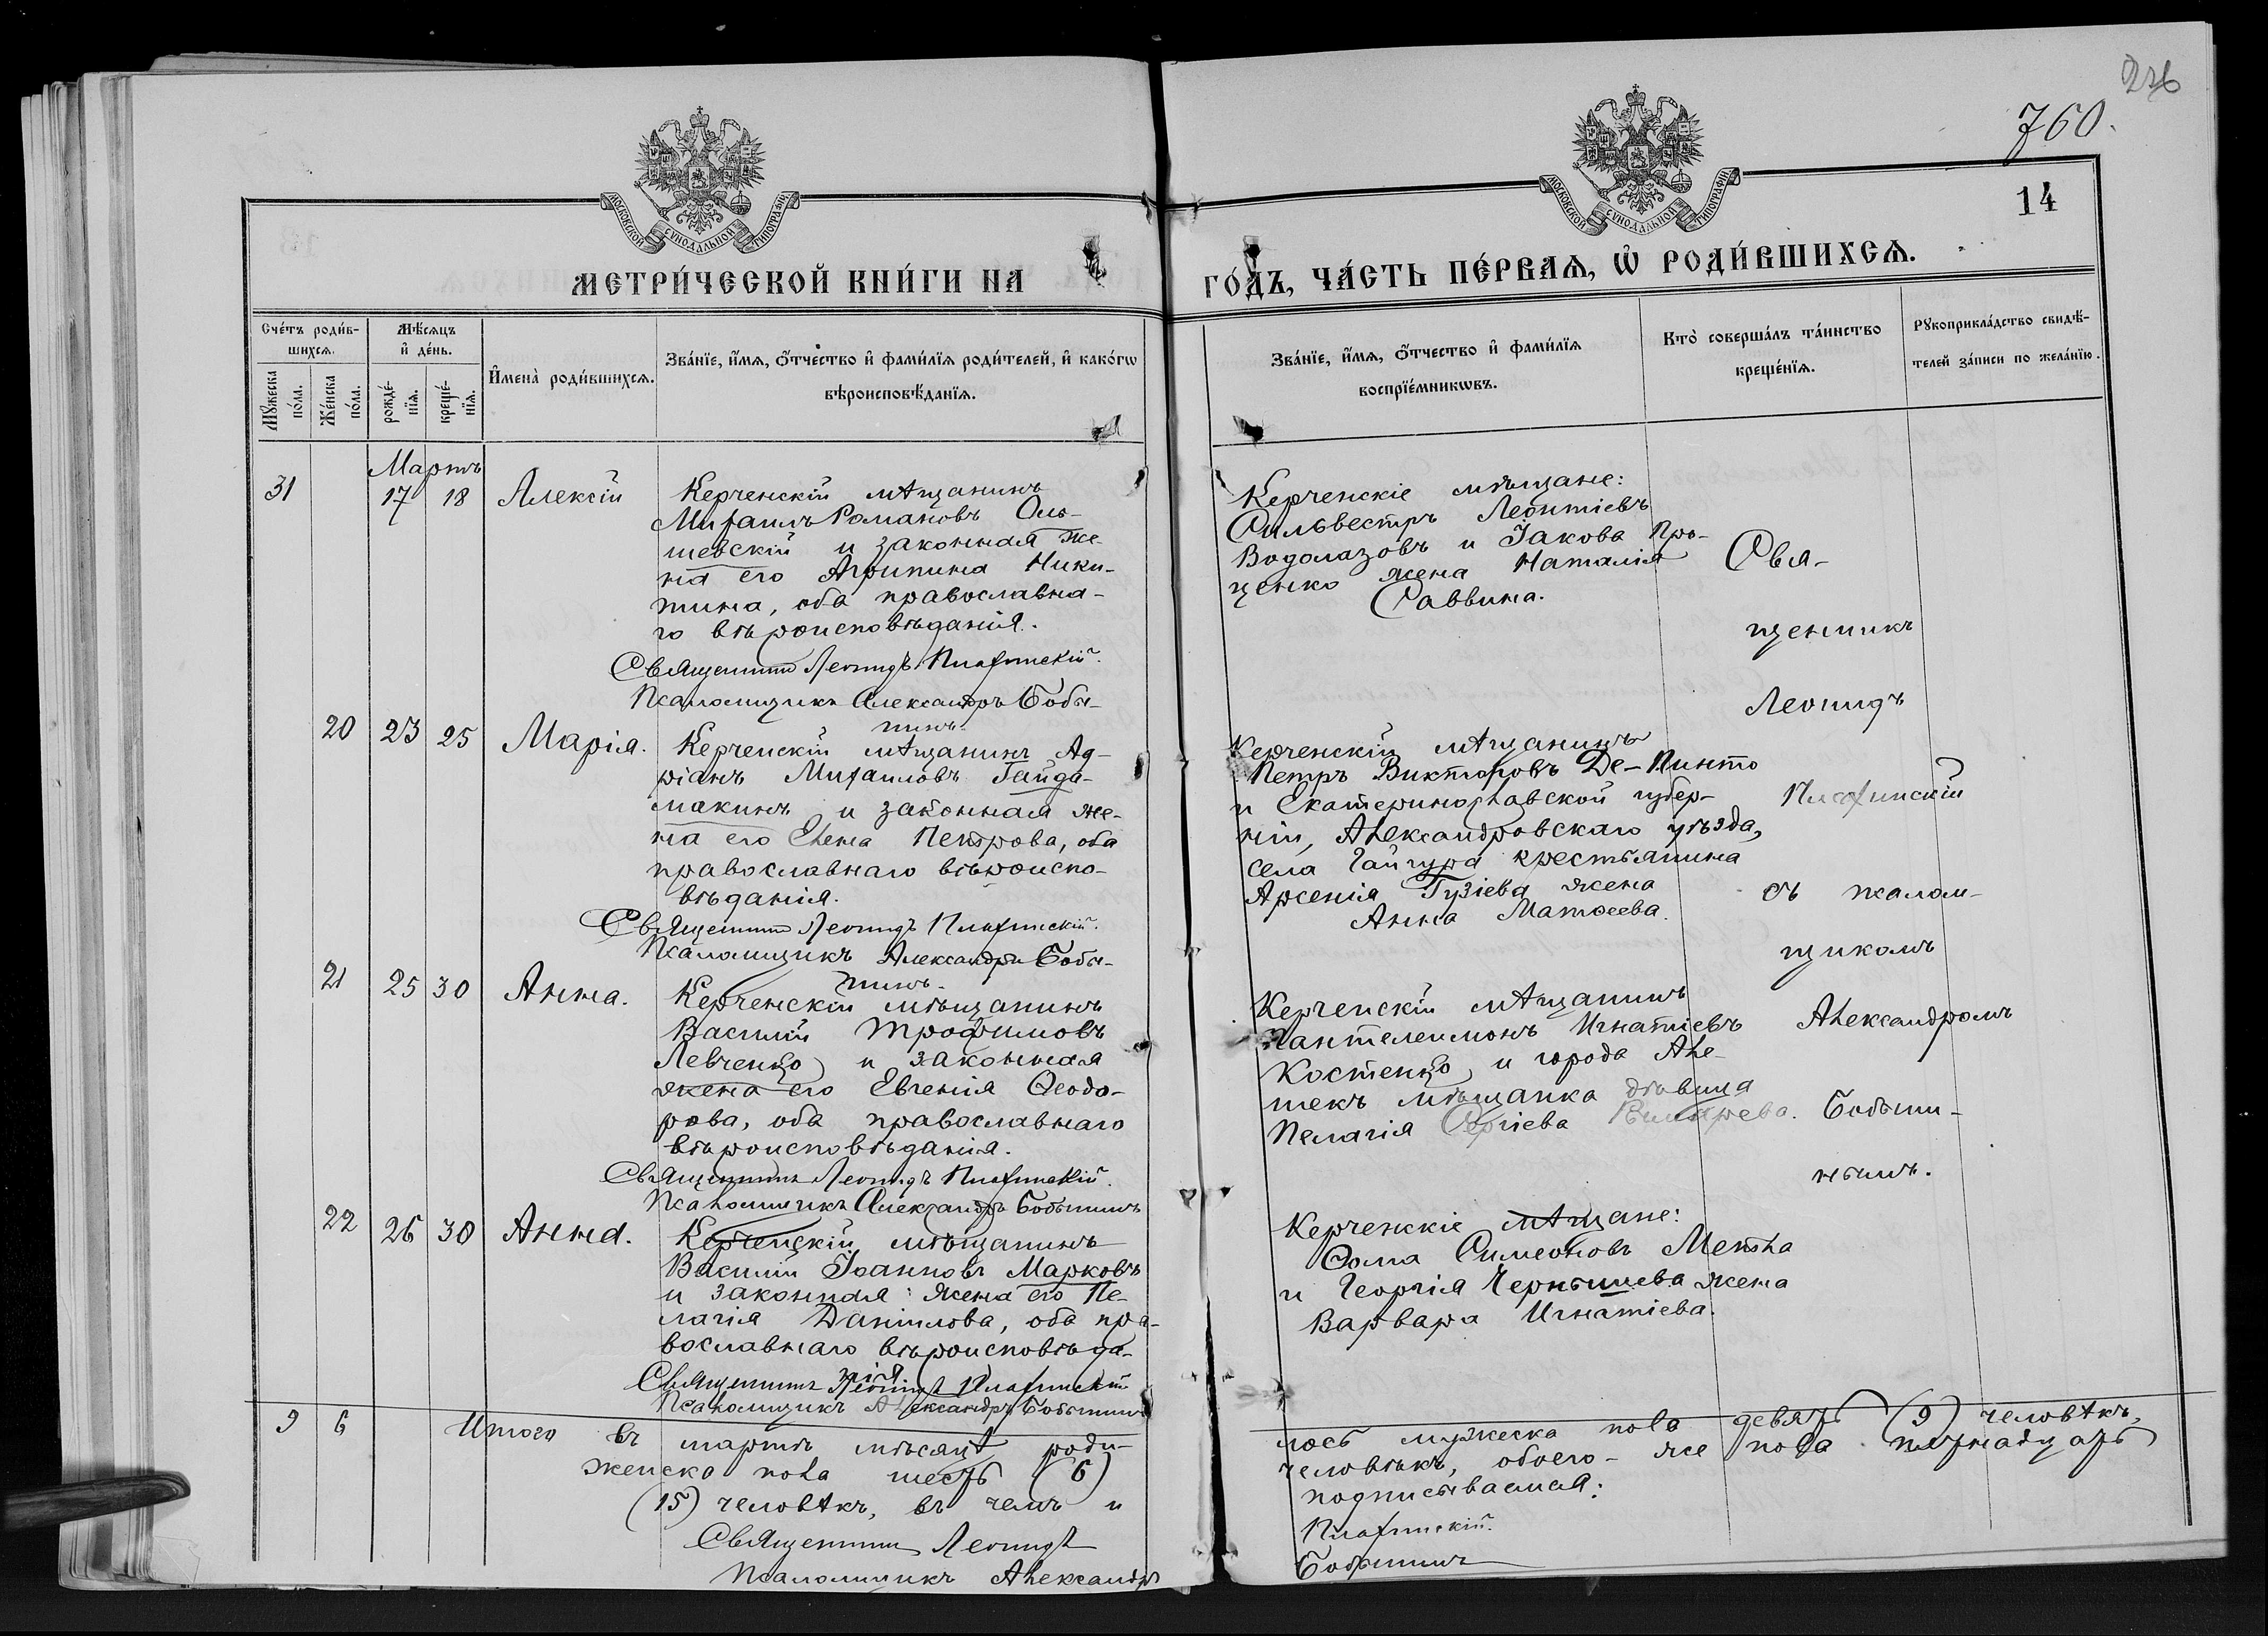 226
760.
14
МОСКОВСКОЙ СѴНОДАЛЬНОЙ ТИПОГРАФІИ
МОСКОВСКОЙ СѴНОДАЛЬНОЙ ТИПОГРАФІИ
МЕТРИ́ЧЕСКОЙ КНИ́ГИ НА
ГО́ДЪ, ЧА́СТЬ ПЕ́РВАѦ, Ѡ҆ РОДИ́ВШИХСѦ.
Сче́тъ роди́в-
шихсѧ.
Мꙋ́жеска по́ла.
Же́нска по́ла.
Мѣ́сѧцъ
и҆ де́нь.
рожде́-
нїѧ.
креще́-
нїѧ.
И҆мена̀ роди́вшихсѧ.
Зва́нїе, и҆́мѧ, ѻ҆́тчество и҆ фами́лїѧ роди́телей, и҆ како́гѡ
вѣроисповѣ́данїѧ.
Зва́нїе, и҆́мѧ, ѻ҆́тчество и҆ фами́лїѧ
воспрїе́мникѡвъ.
Кто̀ соверша́лъ та́инство
креще́нїѧ.
Рꙋкоприкла́дство свидѣ́-
телей за́писи по жела́нїю.
Мартъ
31 17 18 Алексій
Керченскій мѣщанинъ
Михаилъ Романовъ Оль-
шевскій и законная же-
на его Агрипина Ники-
тина, оба православна-
го вѣроисповѣданія.
Священникъ Леонидъ
Псаломщикъ Александръ Бобы-
нинъ.
Керченскіе мѣщане:
Сильвестръ Леонтіевъ
Водолазовъ и Іакова Про-
ценко жена Наталія
Саввина.
20 23 25 Марія.
Керченскій мѣщанинъ Ад-
ріанъ Михаиловъ Гайда-
макинъ и законная же-
на его Елена Петрова, оба
православнаго вѣроиспо-
вѣданія.
Священникъ Леонидъ
Псаломщикъ Александръ Бобы-
нинъ.
Керченскій мѣщанинъ
Петръ Викторовъ Де-Пинто
и Екатеринославской губер-
ніи, Александровскаго уѣзда,
села Гайчура крестьянина
Арсенія Гузіева жена
Анна Матѳеева.
21 25 30 Анна.
Керченскій мѣщанинъ
Василій Трофимовъ
Левченко и законная
жена его Евгенія Ѳеодо-
рова, оба православнаго
вѣроисповѣданія.
Священникъ Леонидъ
Псаломщикъ Александръ Бобынинъ
Керченскій мѣщанинъ
Пантелеимонъ Игнатіевъ
Костенко и города Але-
шекъ мѣщанка дѣвица
Пелагія Сергіева
22 26 30 Анна.
Керченскій мѣщанинъ
Василій Іоанновъ Марковъ
и законная жена его Пе-
лагія Даніилова, оба пра-
вославнаго вѣроисповѣда-
нія.
Священникъ Леонидъ
Псаломщикъ Александръ Бобынинъ
Керченскіе мѣщане:
Ѳома Симеоновъ Метла
и Георгія Чернышева жена
Варвара Игнатіева.
Свя-
щенникъ
Леонидъ
съ псалом-
щикомъ
Александромъ
Бобыни-
нымъ.
9 6 Итого въ мартѣ мѣсяцѣ роди-
лось мужеска пола девять (9) человѣкъ,
женска пола шесть (6)
человѣкъ, обоего-же пола пятнадцать
(15) человѣкъ, въ чемъ и
подписываемся:
Священникъ Леонидъ
Псаломщикъ Александръ
Бобынинъ